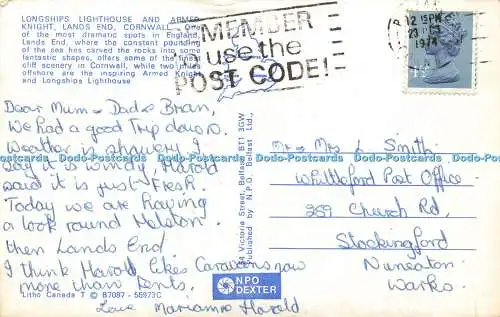 LONGSHIPS LIGHTHOUSE AND ARMED
KNIGHT, LANDS END, CORNWALL. One
of the most dramatic spots in England,
Lands End, where the constant pounding
of the sea has carved the rocks into some
fantastic shapes, offers some of the finest
cliff scenery in Cornwall, while two miles
offshore are the inspiring Armed Knight
and Longships Lighthouse
REMEMBER
use the
POST CODE!
12 15PM
1974
Dear Mum & Dad & Brian,
We had a good Trip down.
Weather is showery I
say it is windy, Harold
said it is just fresh.
Today we are having
a look round Helston
then Lands End.
I think Harold likes Caravans now
more than Tents.
Love Marianne Harold.
Litho Canada T © B7087 - 55973C
54 Victoria Street, Belfast BT1 3GW
Published by N.P.O. Belfast Ltd.,
NPO
DEXTER
Mr & Mrs L Smith
Whittleford Post Office
259 Church Rd,
Stockingford
Nuneaton
Warks.
Dodo-Postcards Dodo-Postcards Dodo-Postcards Dodo-Postcards Dodo-Postcards Dodo-Postcards